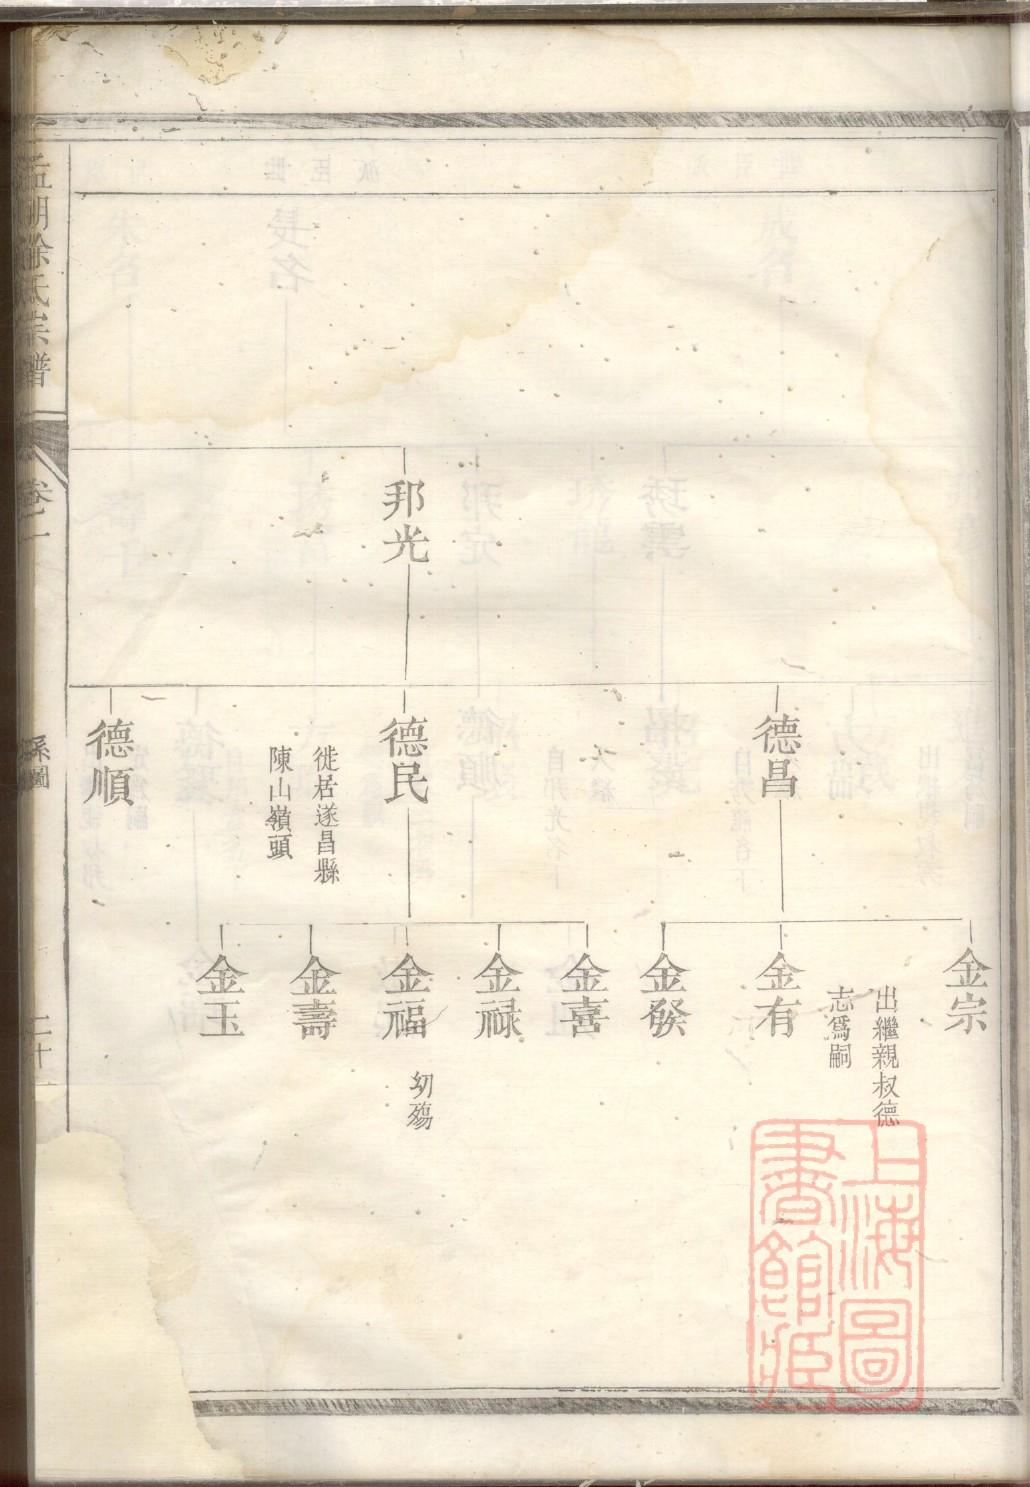 邦光
德昌
德民
徙居遂昌縣
陳山嶺頭
德順
金宗
出繼親叔德
志爲嗣
金有
金發
金喜
金祿
金福
幼殤
金壽
金玉
徐氏宗譜
卷二
系圖
二十
上海圖
書館藏